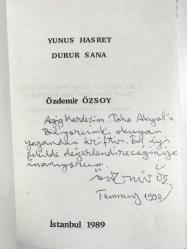 YUNUS HASRET
DURUR SANA
Özdemir ÖZSOY
Aziz Kardeşim Taha Akyol'a
Biliyorumki, okuyan
yazandan ariftir. En iyi
şekilde değerlendireceğinize
inanıyorum.
Temmuz 1990
İstanbul 1989